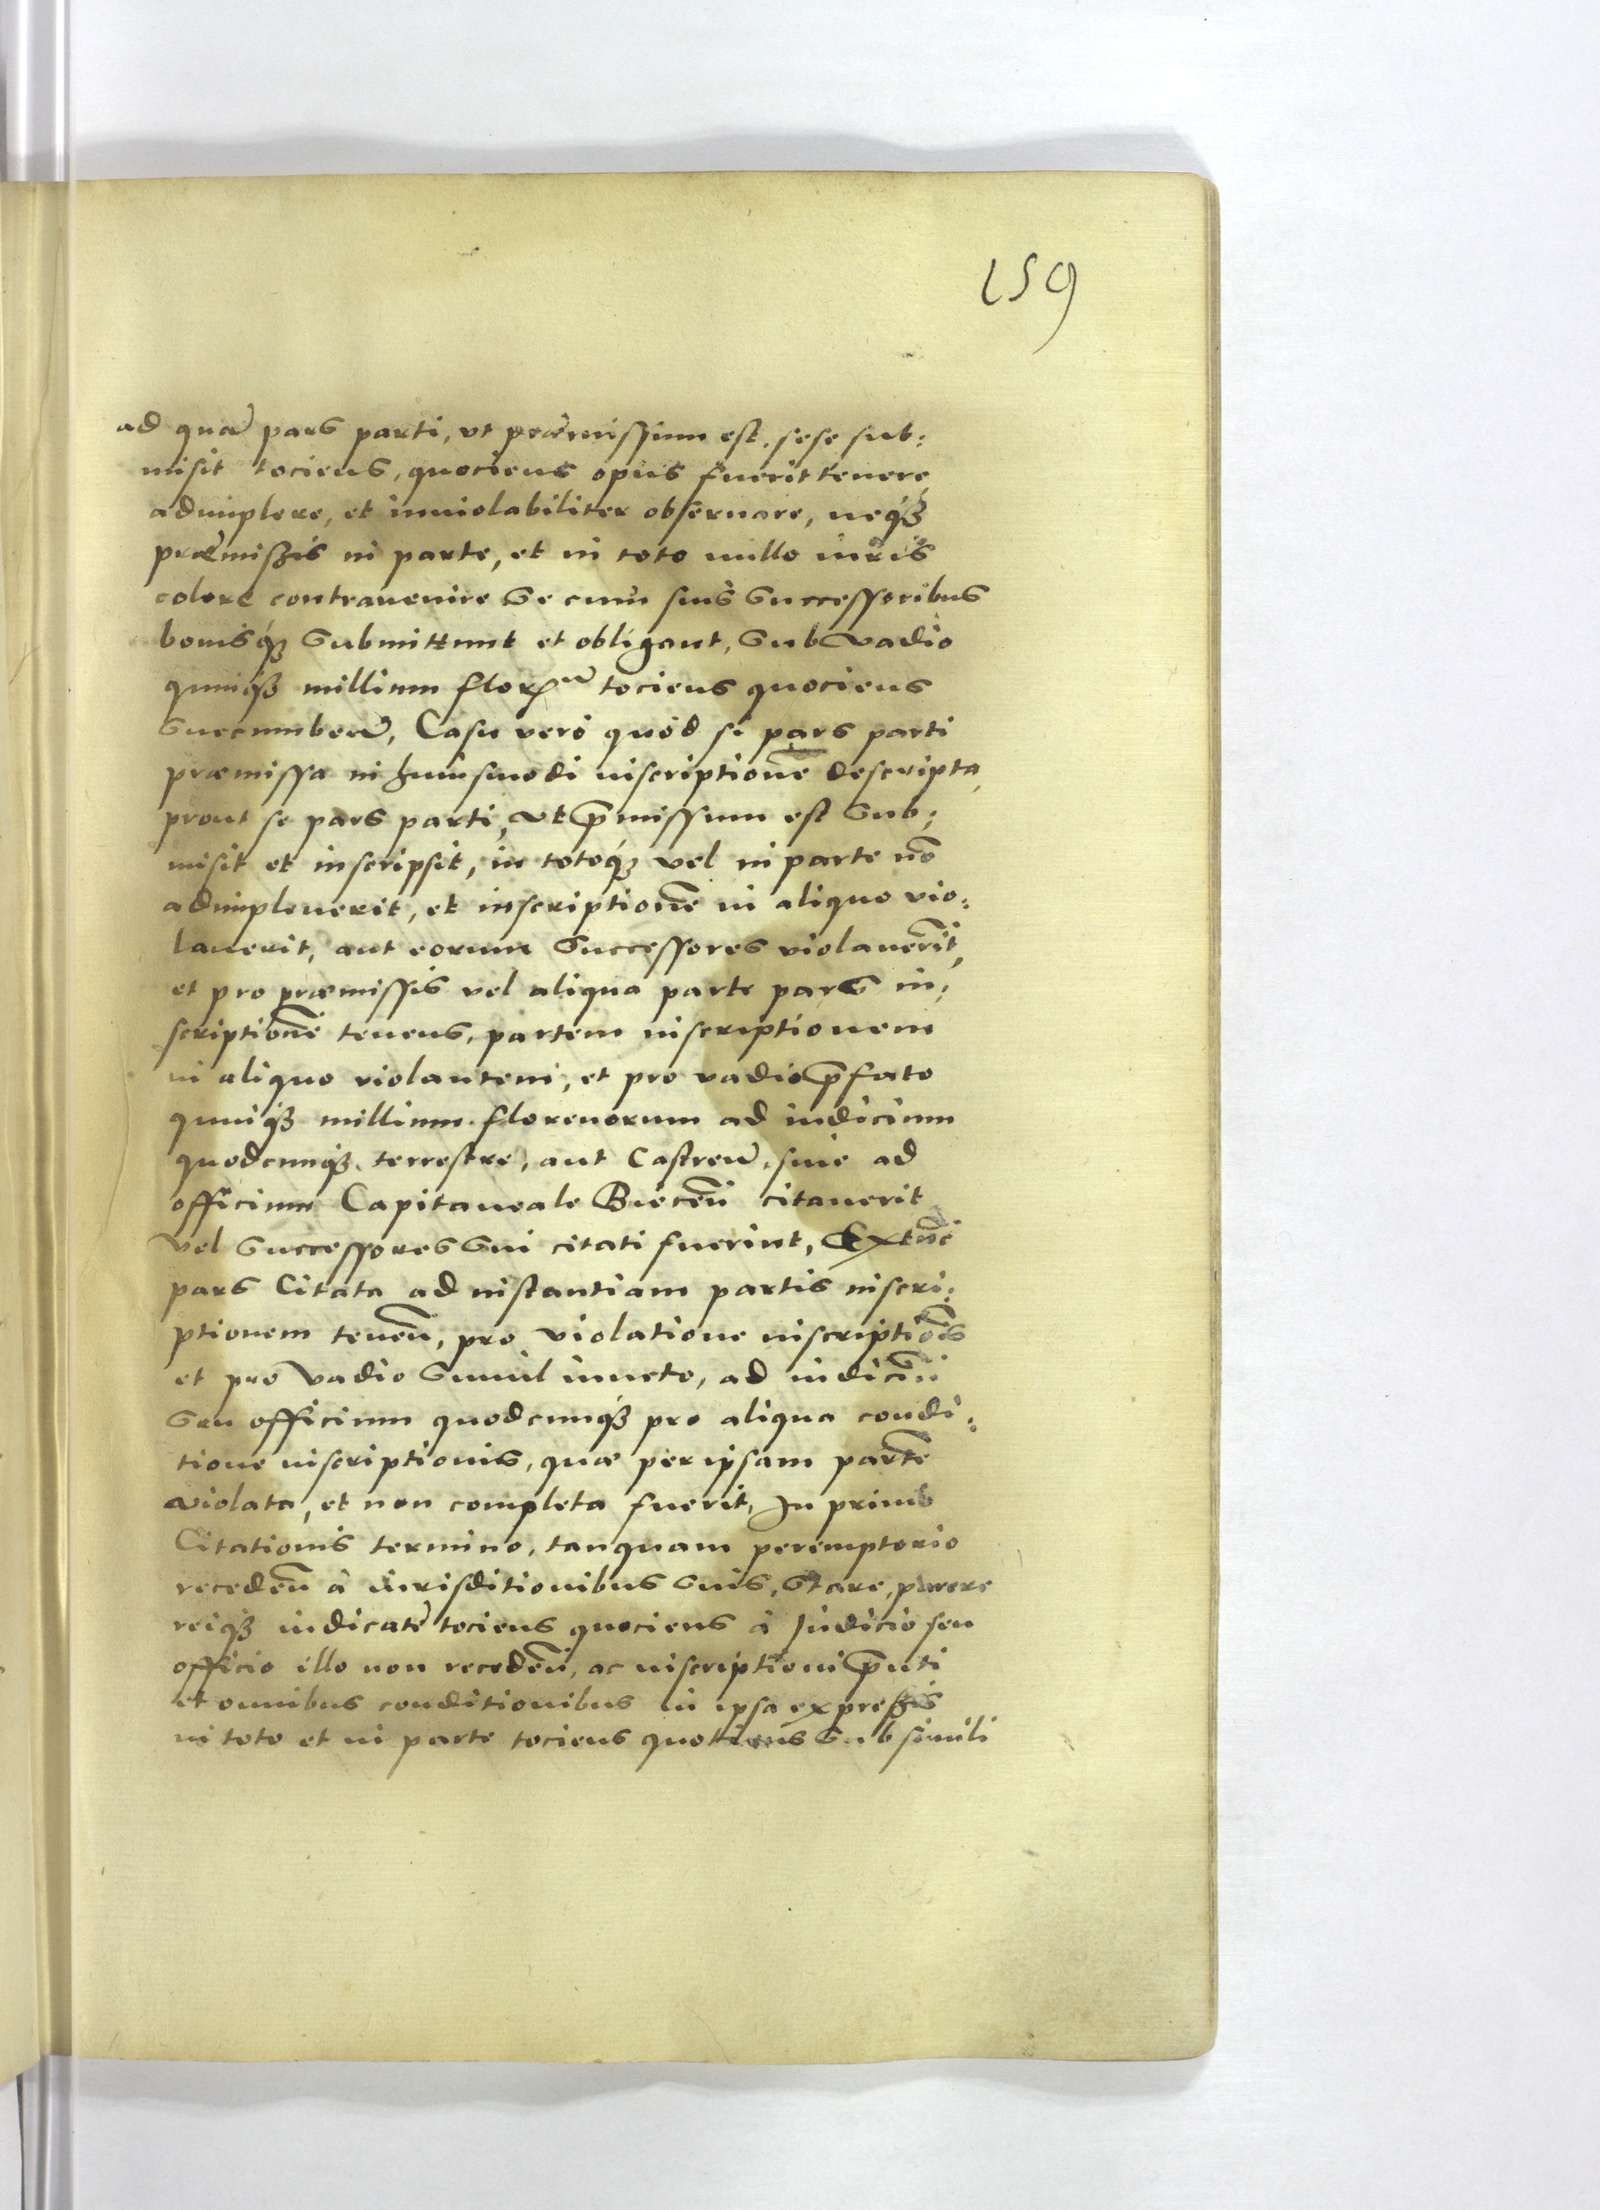 159
ad quã pars parti, vt præmissum est, sese sub:
misit tociens, quociens opus fuerit tenere,
adimplere, et inuiolabiliter obseruare, neq́ꝫ
præmissis in parte, et in toto nullo iuris
colore contrauenire Se cum suis Successoribus
bonisq́ꝫ Submittunt et obligant, Sub Vadio
quinq́ꝫ millium florẽ tociens quociens
Succumbeñ, Casu verò quòd si pars parti
præmissa in huiusmodi inscriptionẽ descripta,
prout se pars parti, vt p̃missum est Sub:
misit et inscripsit, in totoq́ꝫ vel in parte nõ
adimpleuerit, et inscriptionẽ in aliquo vio:
lauerit, aut eorum Successores violauerĩt,
et pro præmissis vel aliqua parte pars in:
scriptionẽ tenens, partem inscriptionem
in aliquo violantem, et pro vadio p̃fato
quinq́ꝫ millium florenorum ad iudicium
quodcunq́ꝫ terrestre, aut Castreñ, siue ad
officium Capitaneale Biecẽn citauerit
vel Successores Sui citati fuerint, Extũc
pars Citata ad instantiam partis inscri:
ptionem teneñ, pro violatione inscriptiõis
et pro Vadio Simul iuncto, ad iudiciũ
Seu officium quodcunq́ꝫ pro aliqua condi:
tione inscriptionis, quæ per ipsam partẽ
violata, et non completa fuerit, In primo
Citationis termino, tanquam peremptorio
recedeñ à iurisditionibus Suis, Stare, parere
reiq́ꝫ iudicatæ tociens quociens à Iudicio seu
officio illo non recedeñ, ac inscriptioni p̃nti
et omnibus conditionibus in ipsa expressis
in toto et in parte tociens quotiens Sub simili